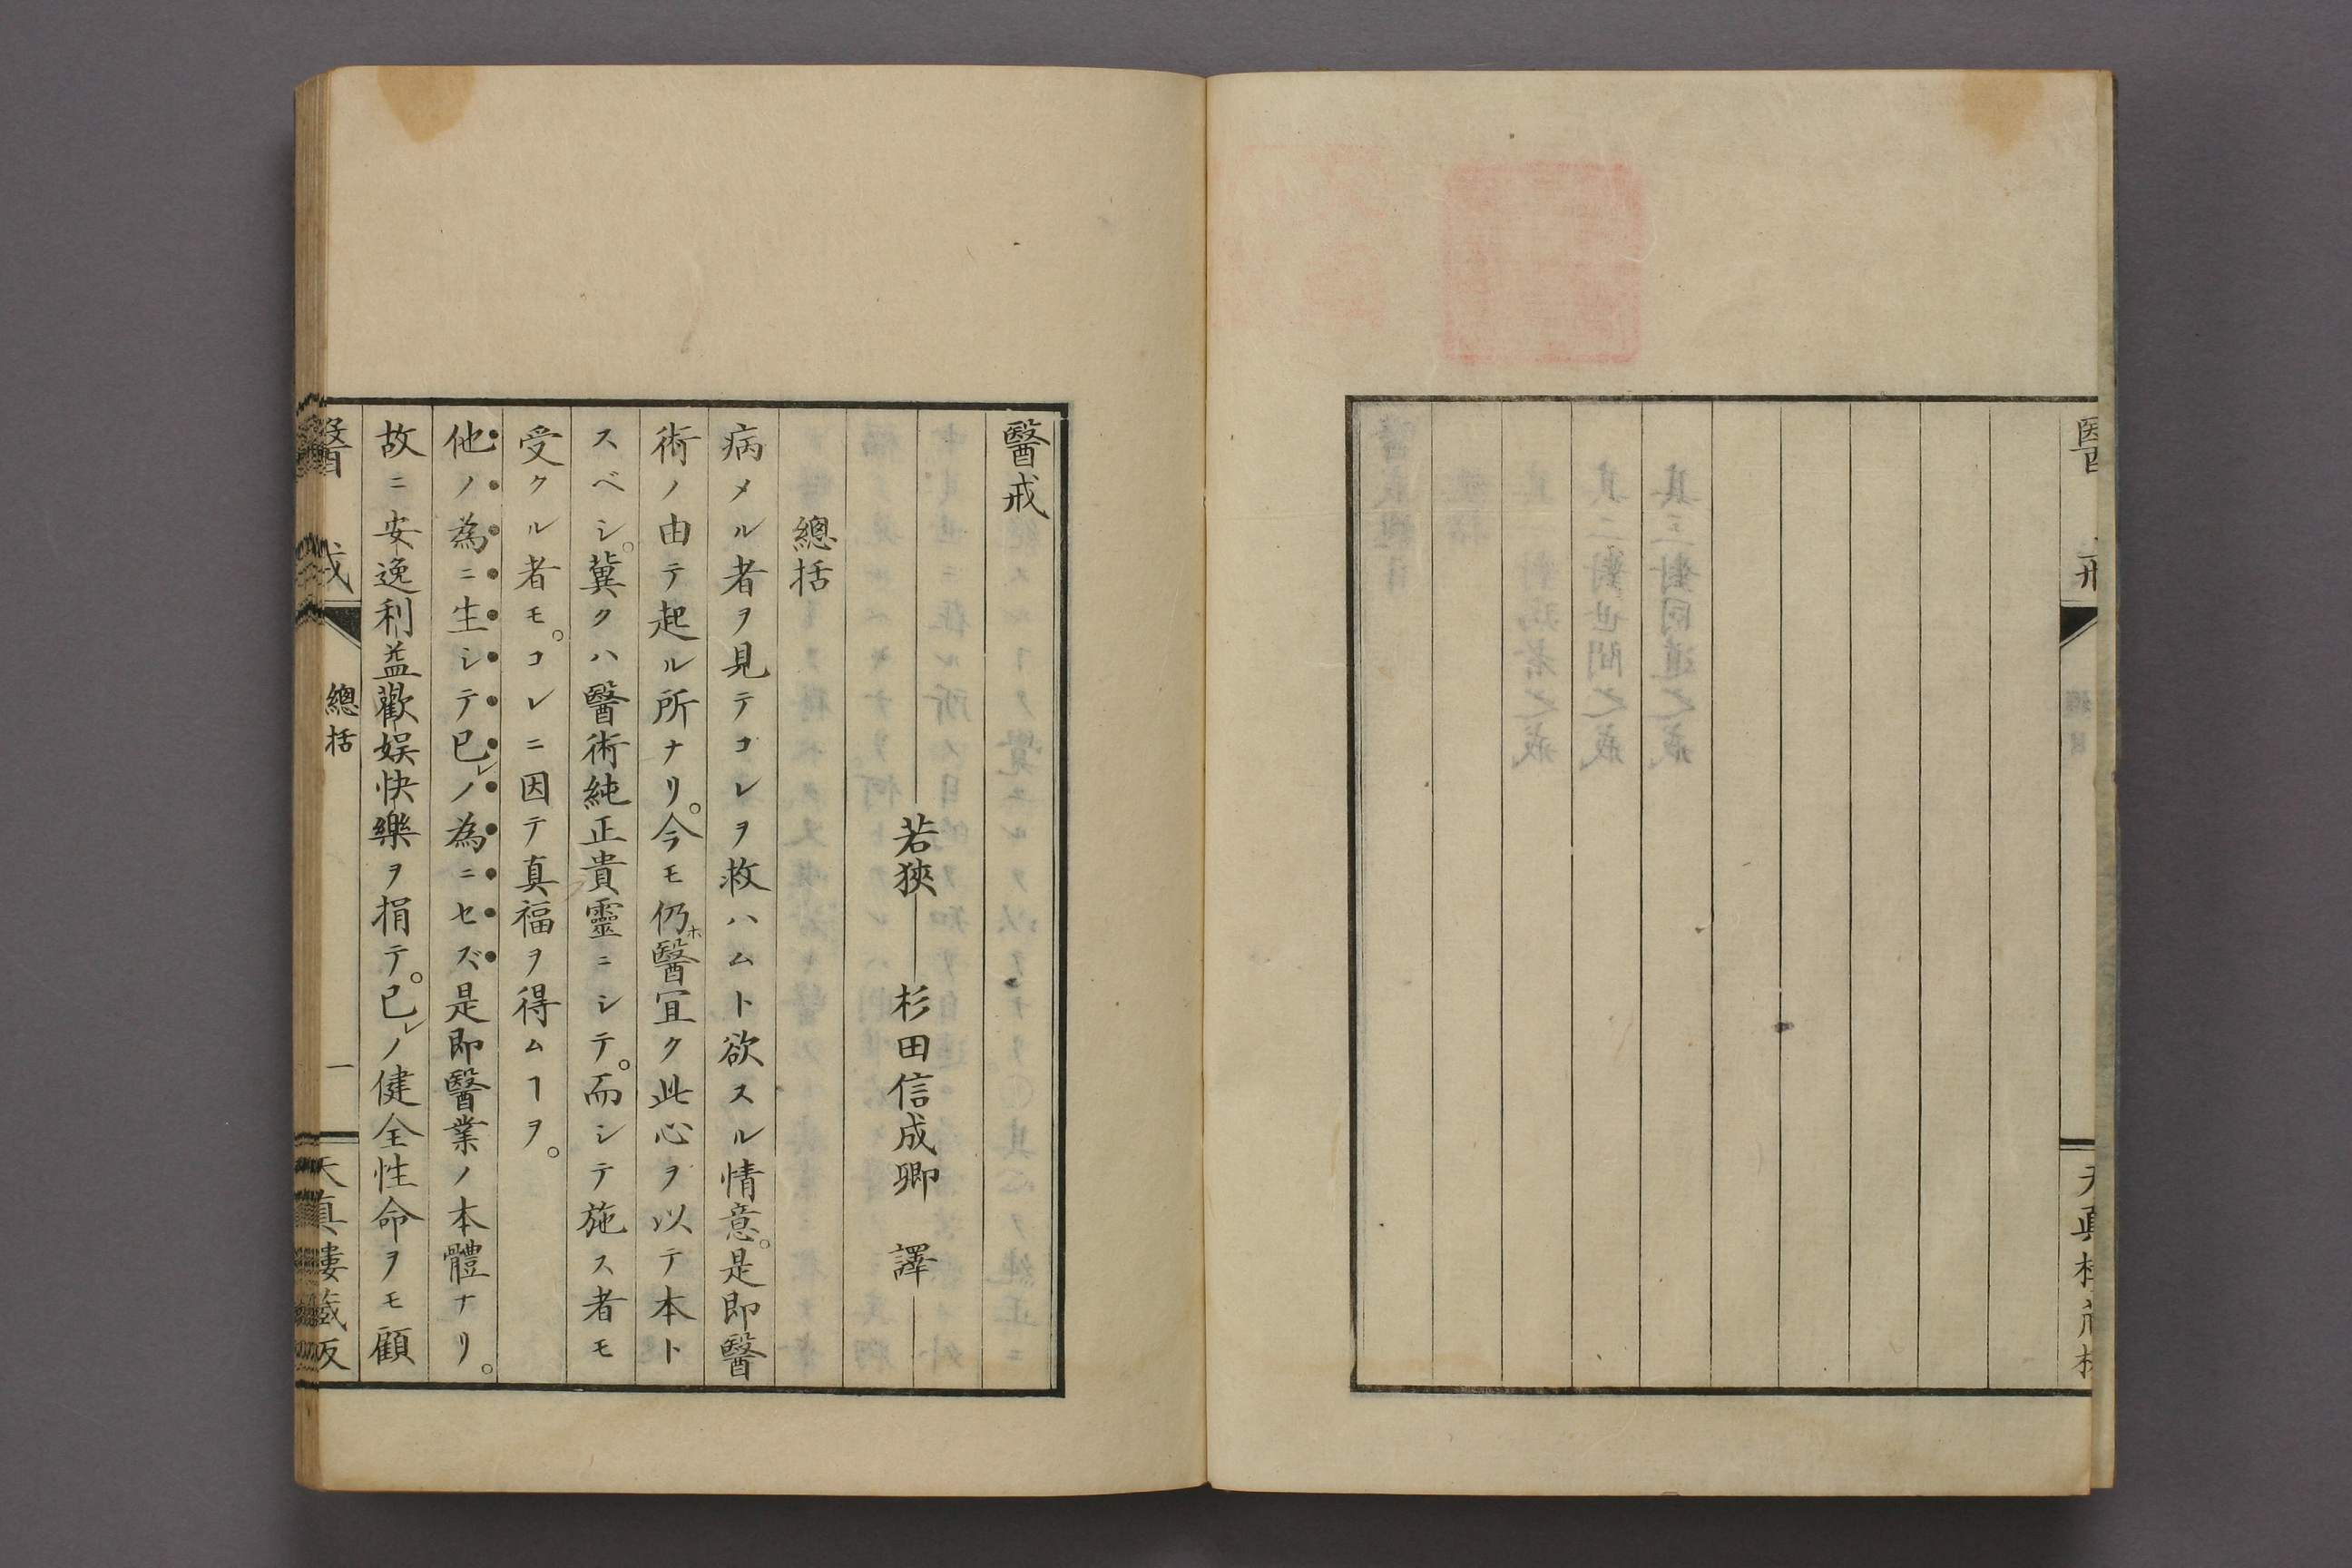 醫戒
若狹 杉田信成卿 譯
總括
病メル者ヲ見テコレヲ救ハムト欲スル情意。是即醫
術ノ由テ起ル所ナリ。今モ仍ホ醫宜ク此心ヲ以テ本ト
スベシ。冀クハ醫術純正貴靈ニシテ。而シテ施ス者モ
受クル者モ。コレニ因テ真福ヲ得ムヿヲ。
他ノ為ニ生シテ已レノ為ニセズ是即醫業ノ本體ナリ。
故ニ安逸利益歡娯快樂ヲ捐テ。已レノ健全性命ヲモ顧
醫戒 總括 一 天真樓藏版